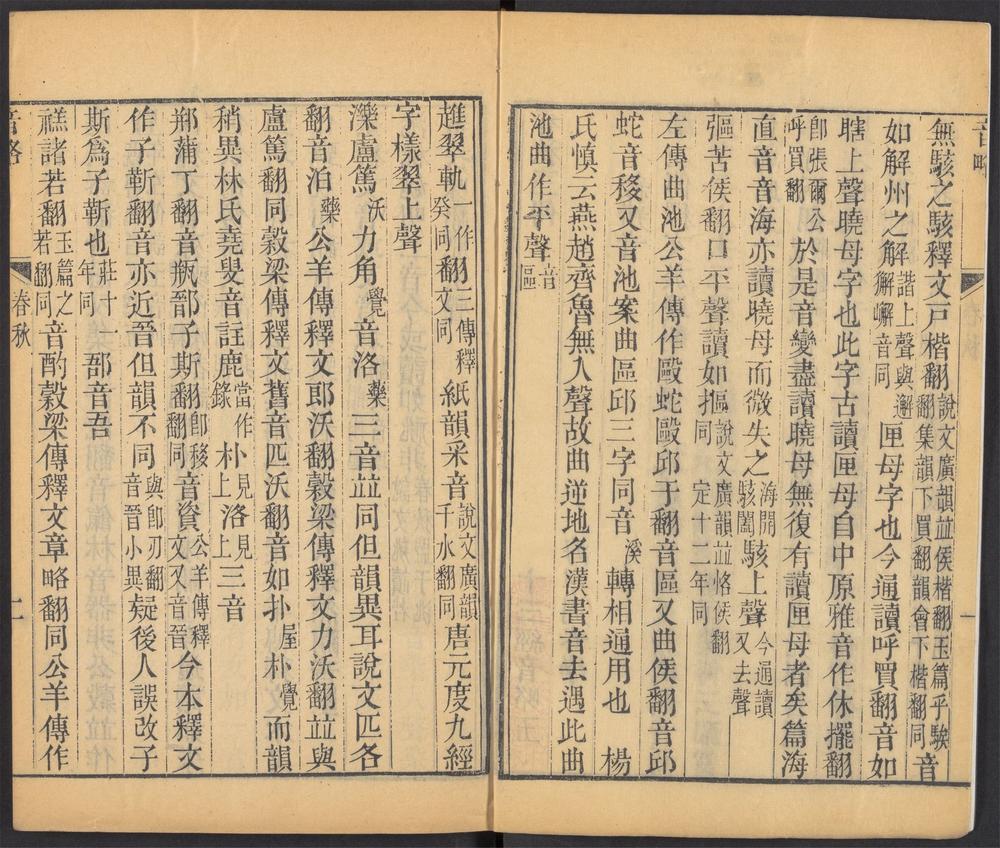 音略
無駭之駭釋文戸楷翻說文廣韻竝侯楷翻玉篇乎駭翻集韻下買翻韻會下楷翻同音
如解州之解諧上聲與獬嶰音同邂匣母字也今通讀呼買翻音如
瞎上聲曉母字也此字古讀匣母自中原雅音作休擺翻
卽張爾公呼買翻於是音變盡讀曉母無復有讀匣母者矣篇海
直音音海亦讀曉母而微失之海開駭闓駭上聲今通讀又去聲
彄苦侯翻口平聲讀如摳說文廣韻竝恪侯翻同定十二年同
左傳曲池公羊傳作毆蛇毆邱于翻音區又曲侯翻音邱
蛇音移又音池案曲區邱三字同音溪轉相通用也 楊
氏慎云燕趙齊魯無入聲故曲逆地名漢書音去遇此曲
池曲作平聲音區
一
趡翠軌一作癸翻同三傳釋文同紙韻采音說文廣韻千水翻同唐元度九經
字樣翠上聲
濼盧篤沃力角覺音洛藥三音竝同但韻異耳說文匹各
翻音泊藥公羊傳釋文郎沃翻穀梁傳釋文力沃翻竝與
盧篤翻同穀梁傳釋文舊音匹沃翻音如扑屋朴覺而韻
稍異林氏堯叟音註鹿當作錄朴見上洛見上三音
郱蒲丁翻音瓶鄑子斯翻卽移翻同音資公羊傳釋文又音晉今本釋文
作子靳翻音亦近晉但韻不同與卽刃翻音晉小異疑後人誤改子
斯為子靳也莊十一年同郚音吾
禚諸若翻玉篇之若翻同音酌穀梁傳釋文章略翻同公羊傳作
音略
春秋
二